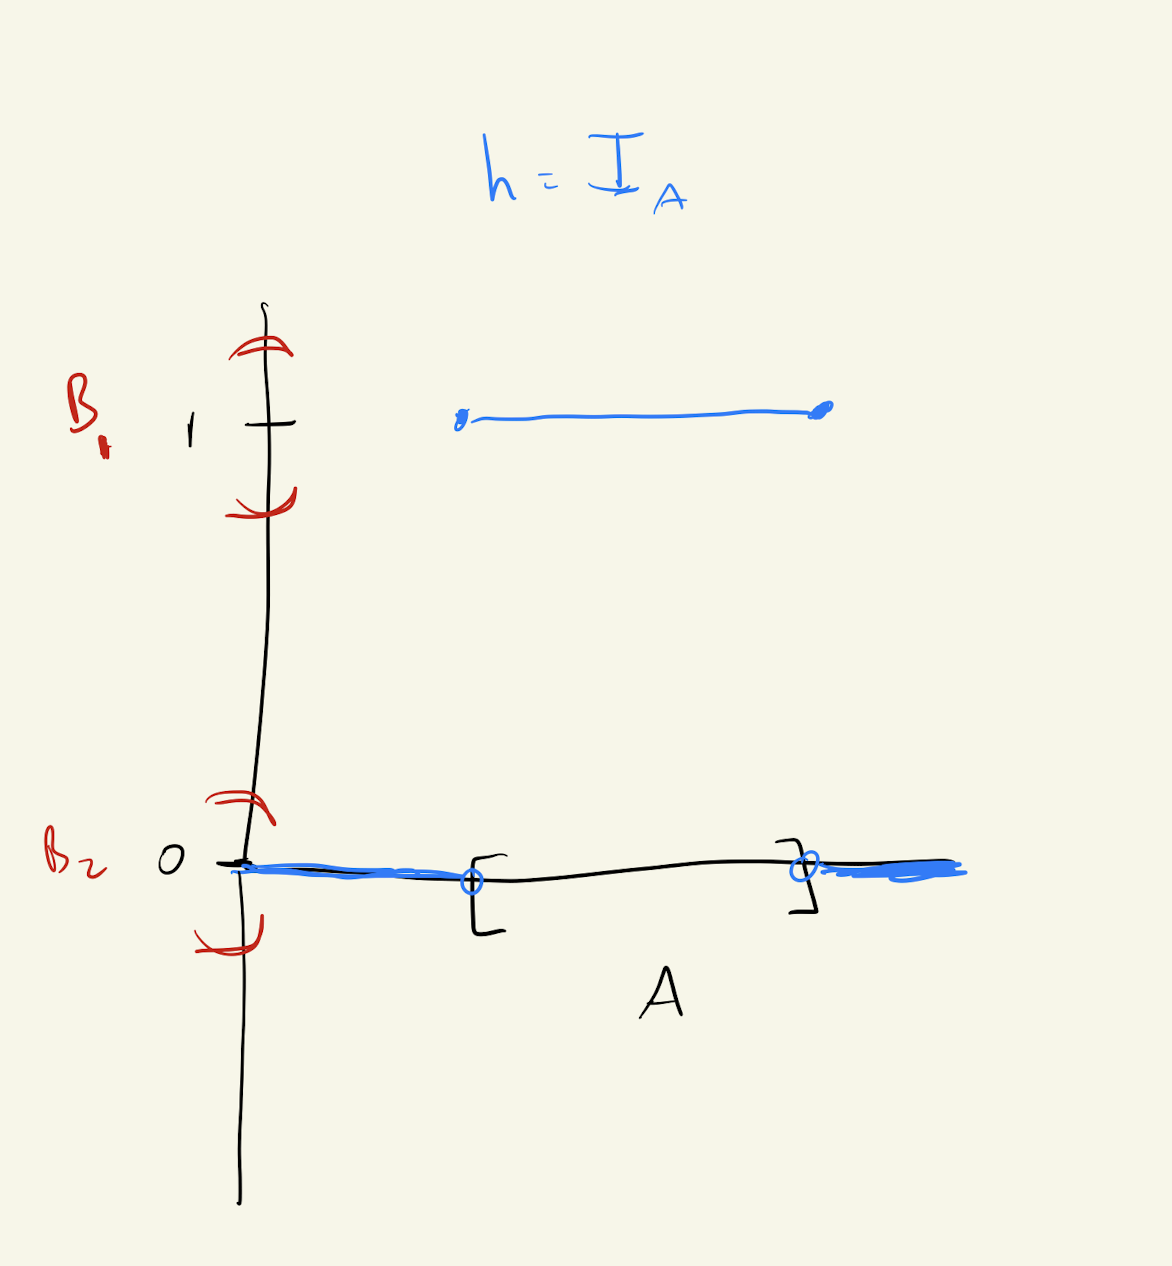 h = I_A
B_1
1
B_2
0
A